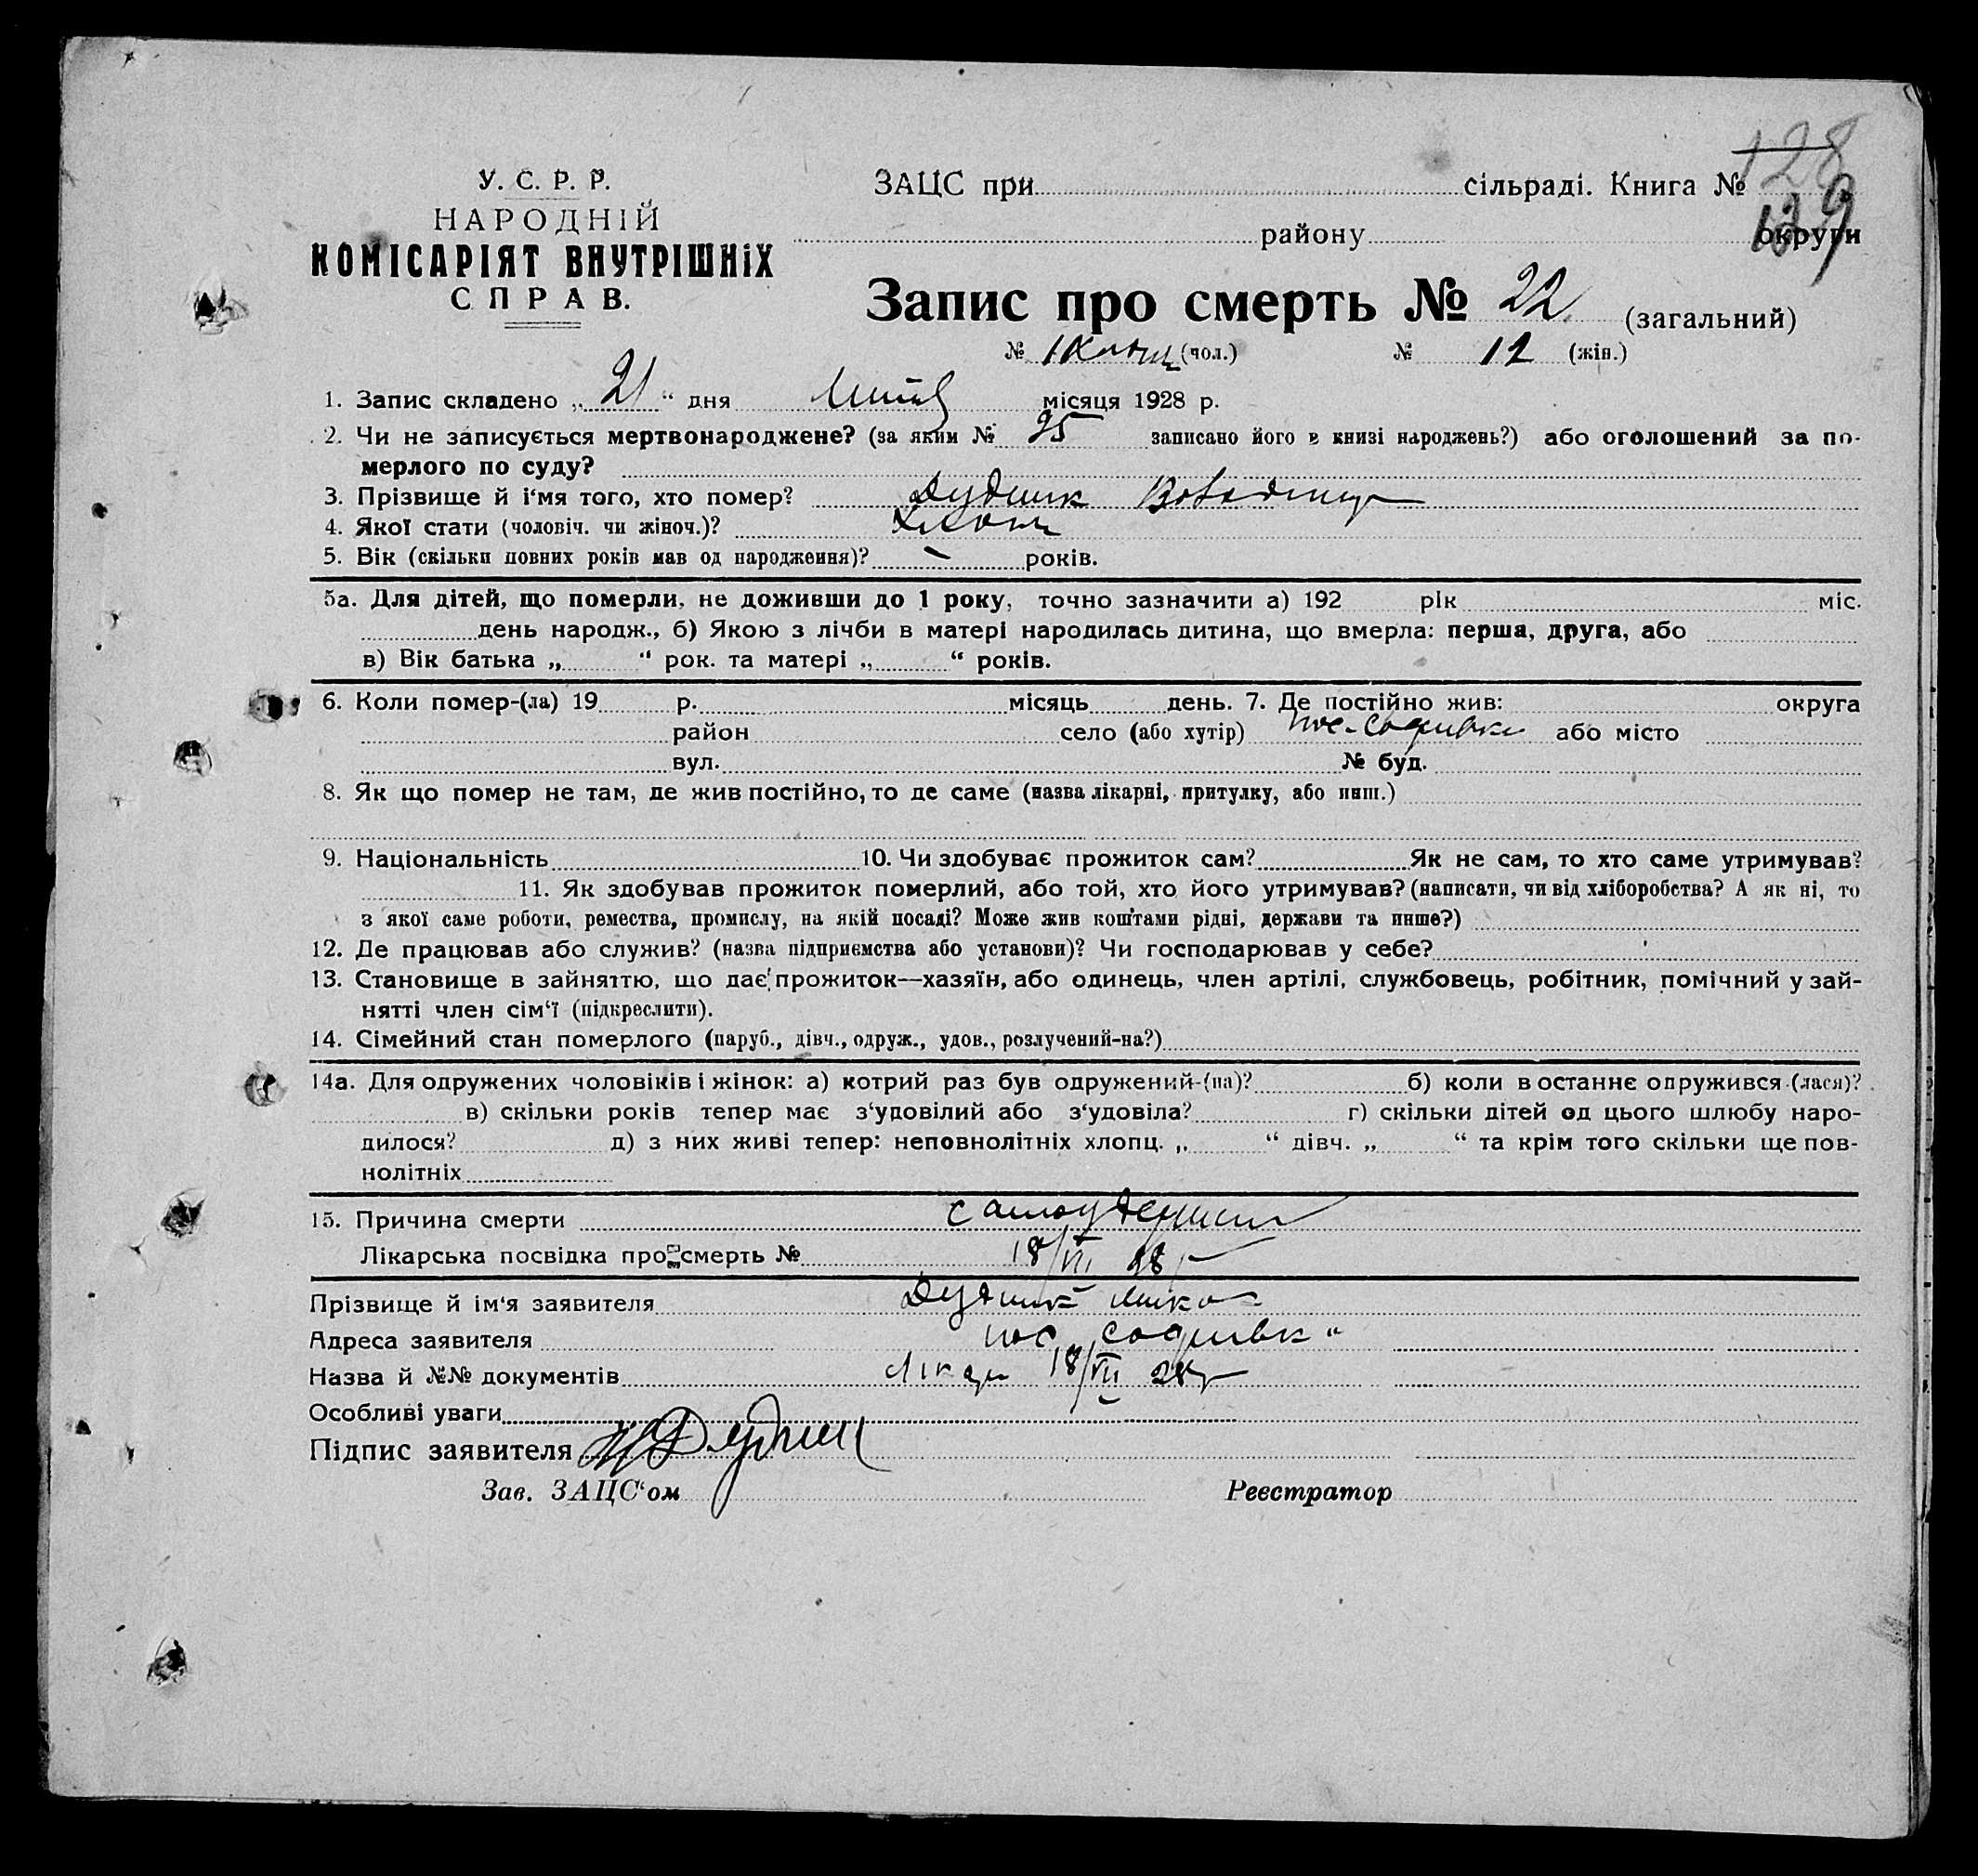 128
139
У. С. Р. Р.
НАРОДНІЙ
КОМІСАРІЯТ ВНУТРІШНІХ
СПРАВ.
ЗАЦС при сільраді. Книга №
району округи
Запис про смерть № 22 (загальний)
№ (чол.) № 12 (жін.)
1. Запис складено „21“ дня місяця 1928 р.
2. Чи не записується мертвонароджене? (за яким № 25 записано його в книзі народжень?) або оголошений за по-
мерлого по суду?
3. Прізвище й і'мя того, хто помер? Дудник Володимир
4. Якої стати (чоловіч. чи жіноч.)?
5. Вік (скільки повних років мав од народження)? – років.
5а. Для дітей, що померли, не доживши до 1 року, точно зазначити а) 192 рік міс.
день народж., б) Якою з лічби в матері народилась дитина, що вмерла: перша, друга, або
в) Вік батька „ “ рок. та матері „ “ років.
6. Коли помер-(ла) 19 р. місяць день. 7. Де постійно жив: округа
район село (або хутір) пос. Софиевка або місто
вул. № буд.
8. Як що помер не там, де жив постійно, то де саме (назва лікарні, притулку, або инш.)
9. Національність 10. Чи здобуває прожиток сам? Як не сам, то хто саме утримував?
11. Як здобував прожиток померлий, або той, хто його утримував? (написати, чи від хліборобства? А як ні, то
з якої саме роботи, ремества, промислу, на якій посаді? Може жив коштами рідні, держави та инше?)
12. Де працював або служив? (назва підприємства або установи)? Чи господарював у себе?
13. Становище в зайняттю, що дає прожиток—хазяїн, або одинець, член артілі, службовець, робітник, помічний у зай-
нятті член сім'ї (підкреслити).
14. Сімейний стан померлого (паруб., дівч., одруж., удов., розлучений-на?)
14а. Для одружених чоловіків і жінок: а) котрий раз був одружений-(на)? б) коли востаннє опружився-(лася)?
в) скільки років тепер має з'удовілий або з'удовіла? г) скільки дітей од цього шлюбу наро-
дилося? д) з них живі тепер: неповнолітніх хлопц. „ “ дівч. „ “ та крім того скільки ще пов-
нолітніх
15. Причина смерти
Лікарська посвідка про смерть № 18/VII 28 р
Прізвище й ім'я заявителя Дудник
Адреса заявителя пос. Софиевк
Назва й №№ документів Лікар 18/VII 28 р
Особливі уваги
Підпис заявителя Дудник
Зав. ЗАЦС'ом Реєстратор